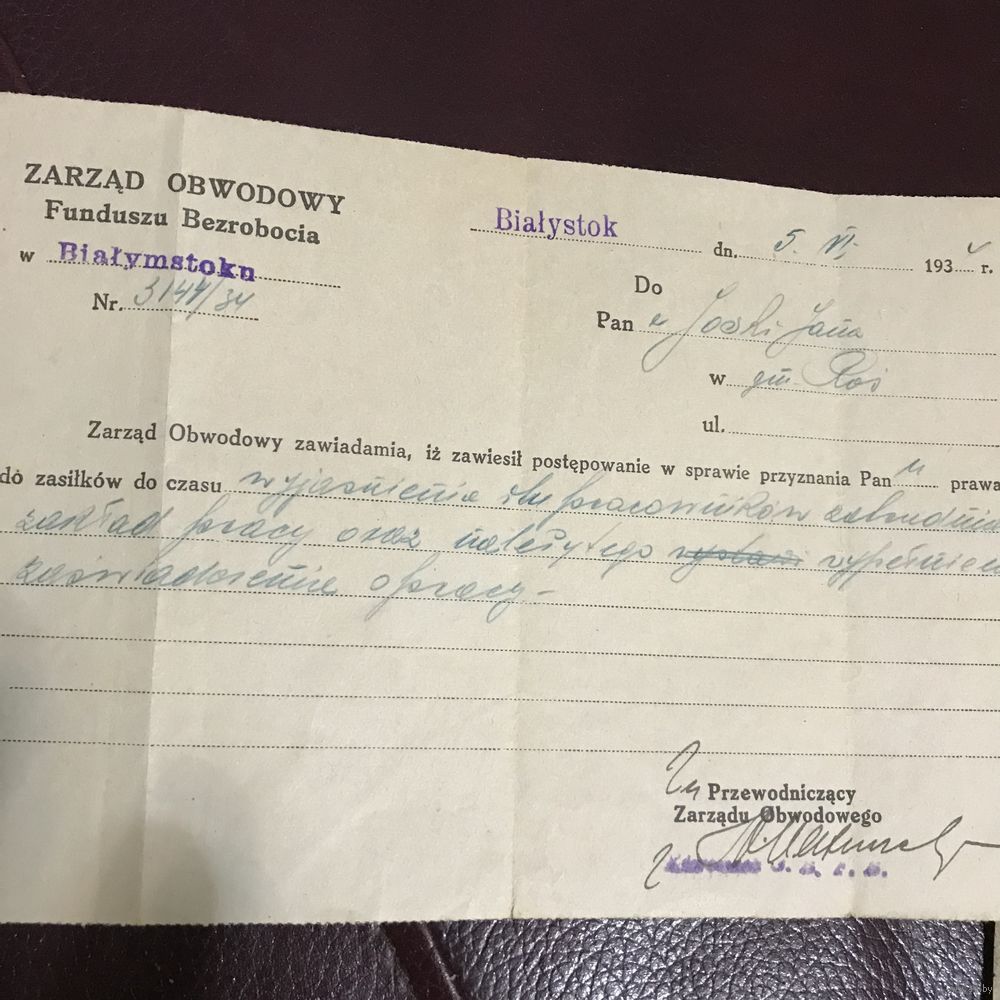 ZARZĄD OBWODOWY
Funduszu Bezrobocia
w Białymstoku
Nr. 3144/34
Białystok dn. 5. VI. 1934 r.
Do
Pan u Jana
w gm. Roś
ul.
Zarząd Obwodowy zawiadamia, iż zawiesił postępowanie w sprawie przyznania Pan u prawa
do zasiłków do czasu wyjaśnienia ilu pracowników zatrudnia
zakład pracy oraz należytego wypełnien
zaświadczenia o pracy-
Przewodniczący
Zarządu Obwodowego